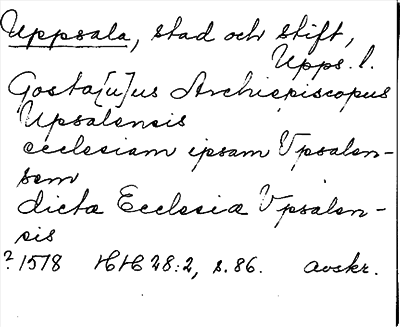 Uppsala, stad och stift,
Upps. l.
Gosta[u]us Archiepiscopus
Upsalensis
ecclesiam ipsam Vpsalen-
sem
dicta Ecclesia Vpsalen-
sis
? 1578 HH 28:2, s. 86. avskr.